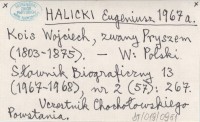 HALICKI Eugeniusz 1967a.
Kois Wojciech, zwany Pryszem
(1803-1875). — W: Polski
Słownik Biograficzny 13
(1967-1968), nr 2 (57): 267.
Uczestnik Chochołowskiego
Powstania.